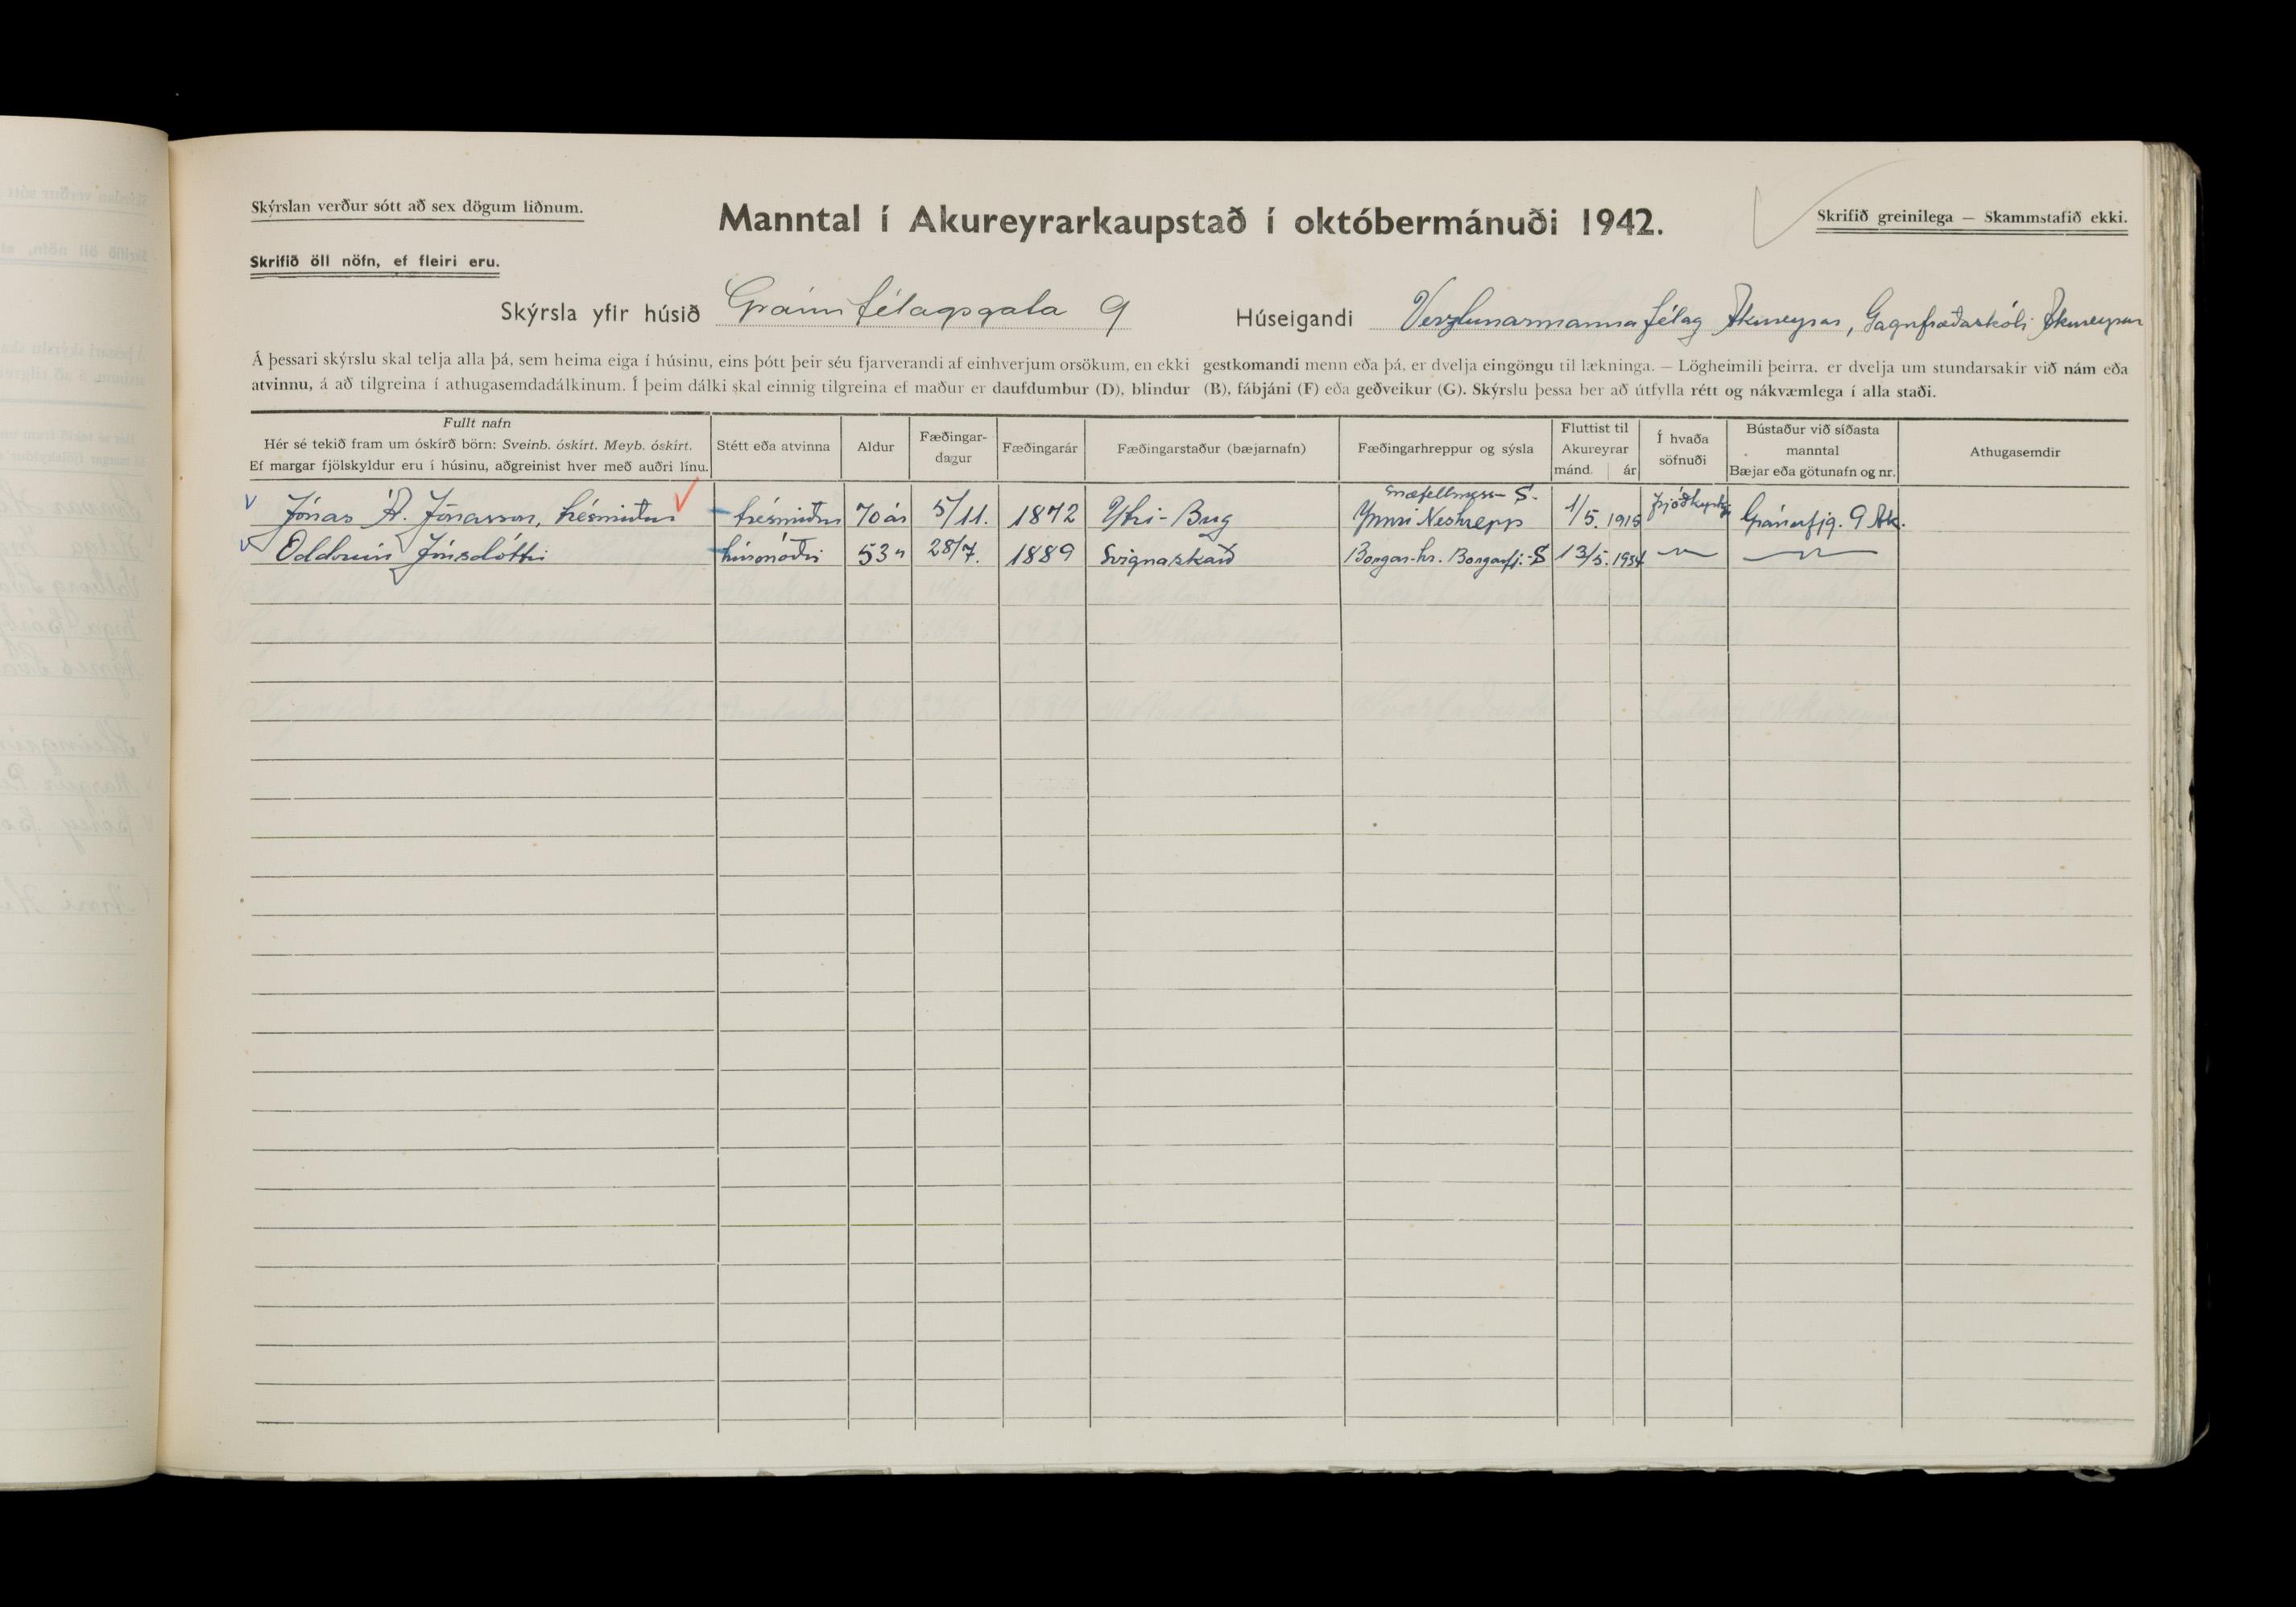 Skýrslan verður sótt að sex dögum liðnum.
Manntal í Akureyrarkaupstað í októbermánuði 1942.
Skrifið greinilega — Skammstafið ekki.
Skrifið öll nöfn, ef fleiri eru.
Skýrsla yfir húsið Gránufélagsgata 9 Húseigandi Verzlunarmannafélag Akureyrar, Gagnfræðaskóli Akureyrar
Á þessari skýrslu skal telja alla þá, sem heima eiga í húsinu, eins þótt þeir séu fjarverandi af einhverjum orsökum, en ekki gestkomandi menn eða þá, er dvelja eingöngu til lækninga. — Lögheimili þeirra, er dvelja um stundarsakir við nám eða
atvinnu, á að tilgreina í athugasemdadálkinum. Í þeim dálki skal einnig tilgreina ef maður er daufdumbur (D), blindur (B), fábjáni (F) eða geðveikur (G). Skýrslu þessa ber að útfylla rétt og nákvæmlega í alla staði.
Fullt nafn
Hér sé tekið fram um óskírð börn: Sveinb. óskírt. Meyb. óskírt.
Ef margar fjölskyldur eru í húsinu, aðgreinist hver með auðri línu.
Stétt eða atvinna
Aldur
Fæðingar-
dagur
Fæðingarár
Fæðingarstaður (bæjarnafn)
Fæðingarhreppur og sýsla
Fluttist til
Akureyrar
mánd. ár
Í hvaða
söfnuði
Bústaður við síðasta
manntal
Bæjar eða götunafn og nr.
Athugasemdir
Snæfellsness- S.
Jónas R. Jónasson, trésmiður trésmiður 70 ár 5/11. 1872 Ytri-Bug Ynnri Neshrepp 1/5. 1915 þjóðkirkju Gránufjg. 9 Ak.
Oddrún Jónsdóttir húsmóðir 53 " 28/7. 1889 Svignaskarð Borgar-hr. Borgarfj.-S 13/5. 1934